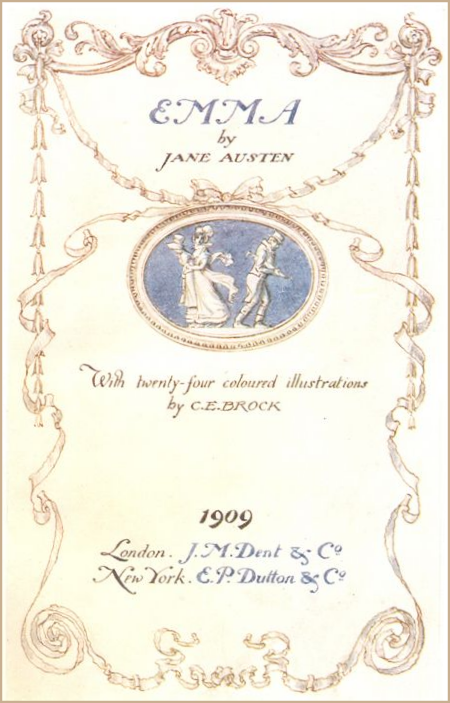 EMMA
by
JANE AUSTEN
With twenty-four coloured illustrations
by C.E. BROCK
1909
London. J.M. Dent & Co
New York. E.P. Dutton & Co